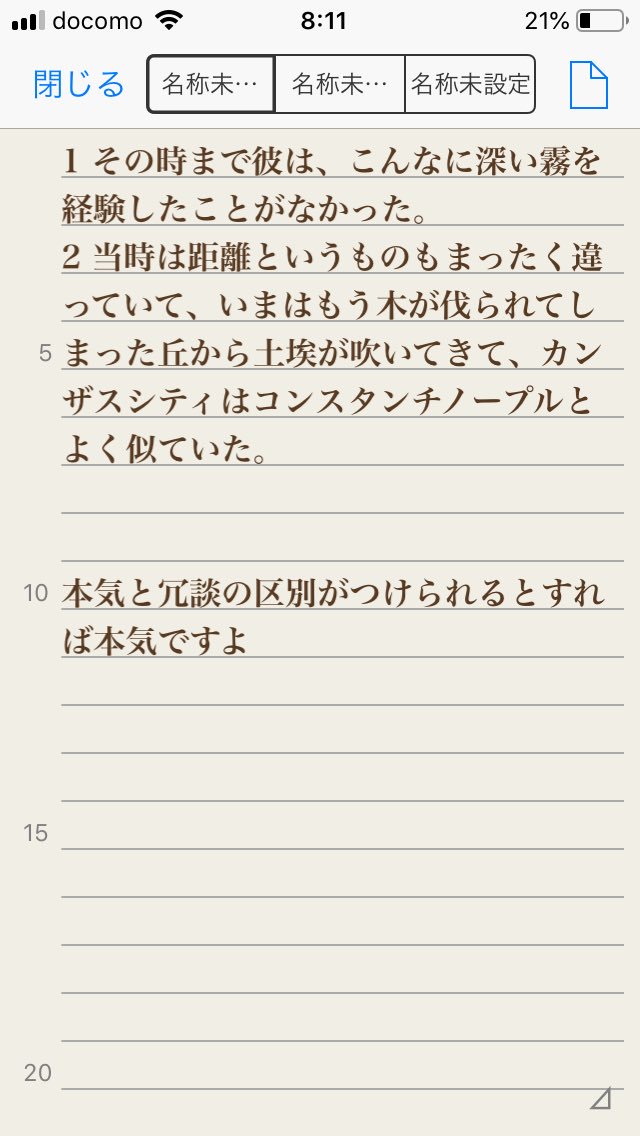 docomo 8:11 21%
閉じる 名称未… 名称未… 名称未設定
1 その時まで彼は、こんなに深い霧を
経験したことがなかった。
2 当時は距離というものもまったく違
っていて、いまはもう木が伐られてし
5 まった丘から土埃が吹いてきて、カン
ザスシティはコンスタンチノープルと
よく似ていた。
10 本気と冗談の区別がつけられるとすれ
ば本気ですよ
15
20